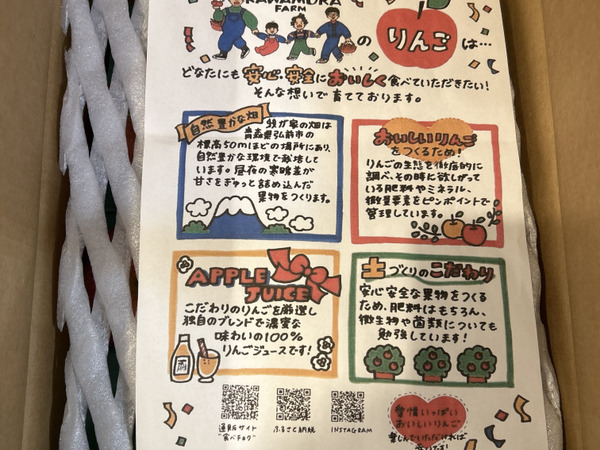 KAWAMURA
FARM
の りんご は…
どなたにも 安心 安全に おいしく 食べていただきたい!
そんな想いで 育てております。
自然 豊かな畑
我が家の畑は
青森県弘前市の
標高50mほどの場所にあり、
自然豊かな環境で栽培して
います。昼夜の寒暖差が
甘さをぎゅっと詰め込んだ
果物をつくります。
おいしいりんご
をつくるため!
りんごの生態を徹底的に
調べ、その時に欲しがって
いる肥料やミネラル、
微量要素をピンポイントで
管理しています。
APPLE
JUICE
こだわりのりんごを厳選し
独自のブレンドで濃密な
味わいの100%
りんごジュースです!
土づくりのこだわり
安心安全な果物をつくる
ため、肥料はもちろん、
微生物や菌類についても
勉強しています!
通販サイト
"食べチョク"
ふるさと納税
INSTAGRAM
愛情いっぱい
おいしいりんご
楽しんでいただければ